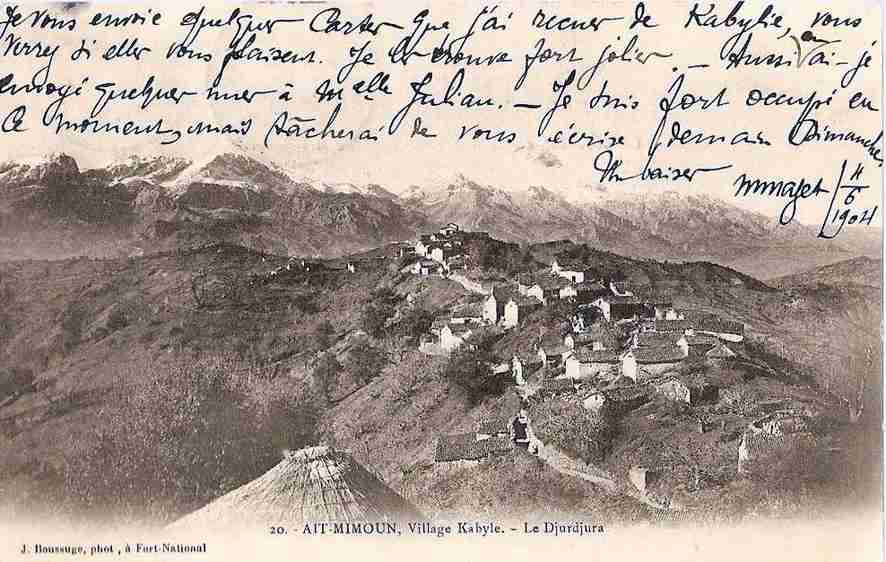 Je vous envoie quelques Cartes que j'ai recues de Kabylie, vous
verrez si elles vous plaisent. Je les trouve fort jolies. - Aussi en ai-je
envoyé quelques unes à Melle Julian. - Je suis fort occupé en
ce moment, mais tâcherai de vous écrire demain Dimanche.
Un baiser
4/6 1904
20. - AIT-MIMOUN, Village Kabyle. - Le Djurdjura
J. Boussuge, phot., à Fort-National